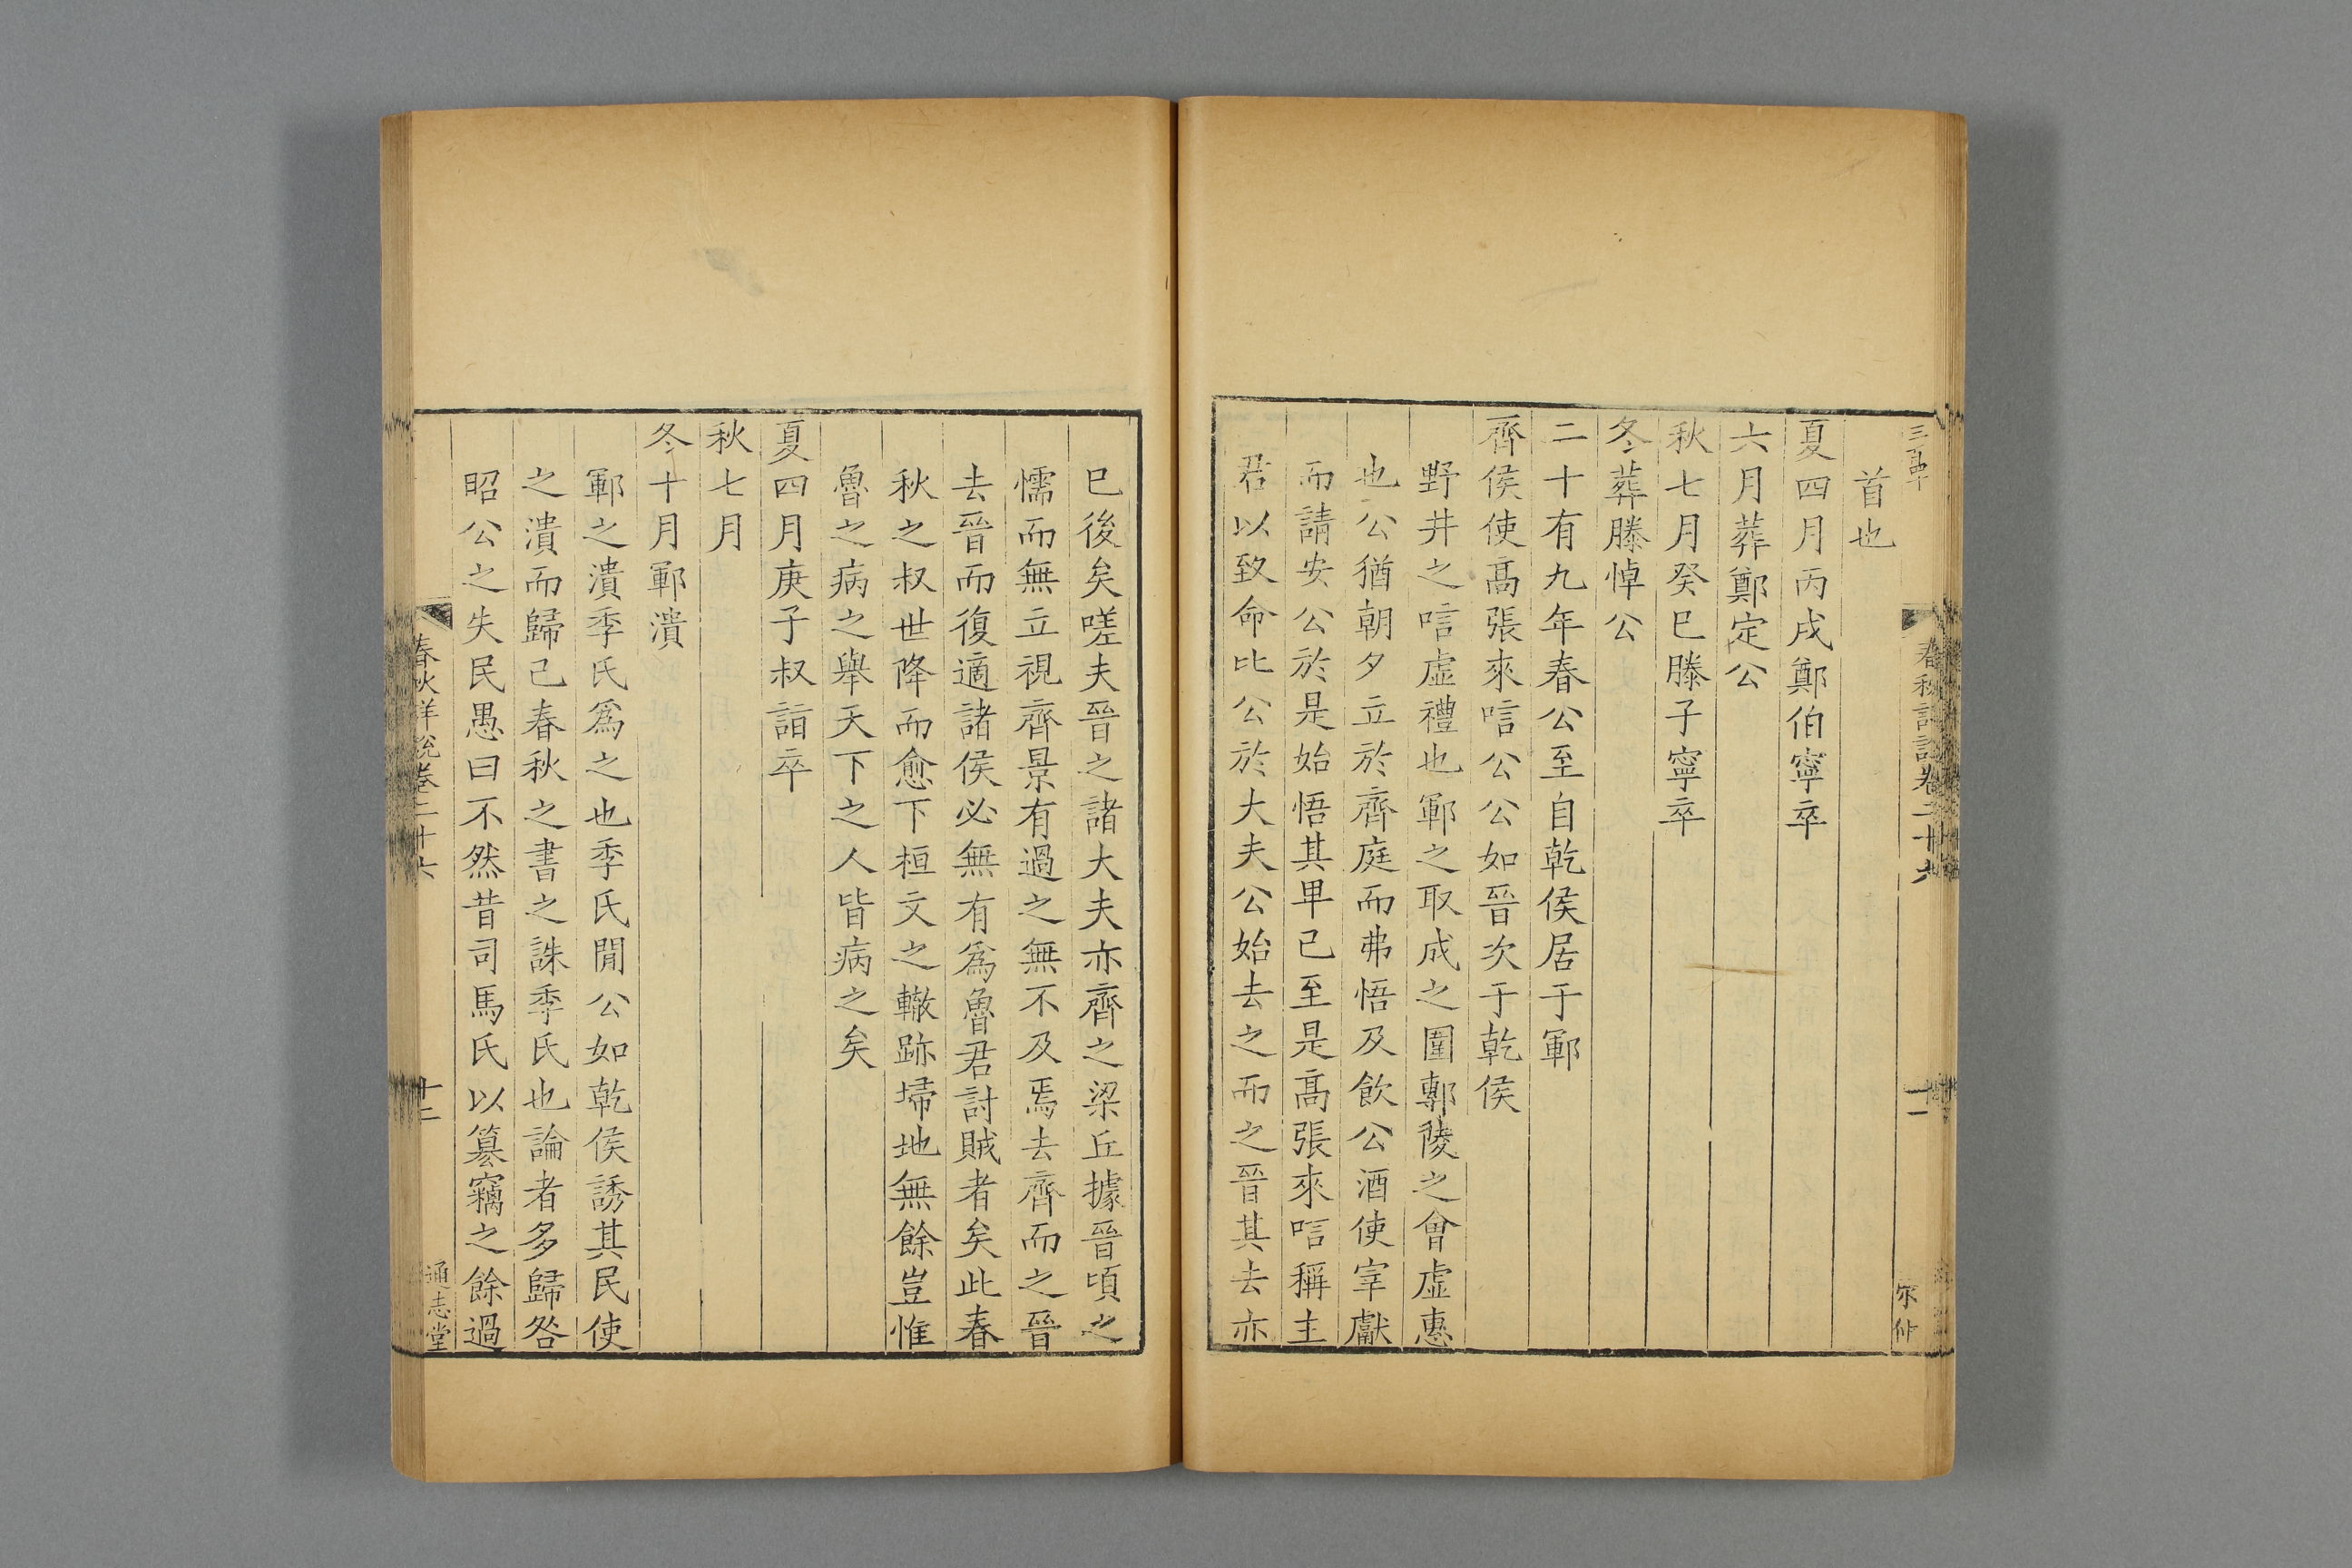 首也
夏四月丙戌鄭伯寧卒
六月葬鄭定公
秋七月癸巳滕子寧卒
冬葬滕悼公
二十有九年春公至自乾侯居于鄆
齊侯使高張來唁公公如晉次于乾侯
野井之唁虛禮也鄆之取成之圍鄟陵之會虛惠
也公猶朝夕立於齊庭而弗悟及飲公酒使宰獻
而請安公於是始悟其卑己至是高張來唁稱主
君以致命比公於大夫公始去之而之晉其去亦
已後矣嗟夫晉之諸大夫亦齊之梁丘據晉頃之
懦而無立視齊景有過之無不及焉去齊而之晉
去晉而復適諸侯必無有為魯君討賊者矣此春
秋之叔世降而愈下桓文之轍跡埽地無餘豈惟
魯之病之舉天下之人皆病之矣
夏四月庚子叔詣卒
秋七月
冬十月鄆潰
鄆之潰季氏爲之也季氏閒公如乾侯誘其民使
之潰而歸己春秋之書之誅季氏也論者多歸咎
昭公之失民愚曰不然昔司馬氏以篡竊之餘過
春秋詳說卷二十六
十二
通志堂